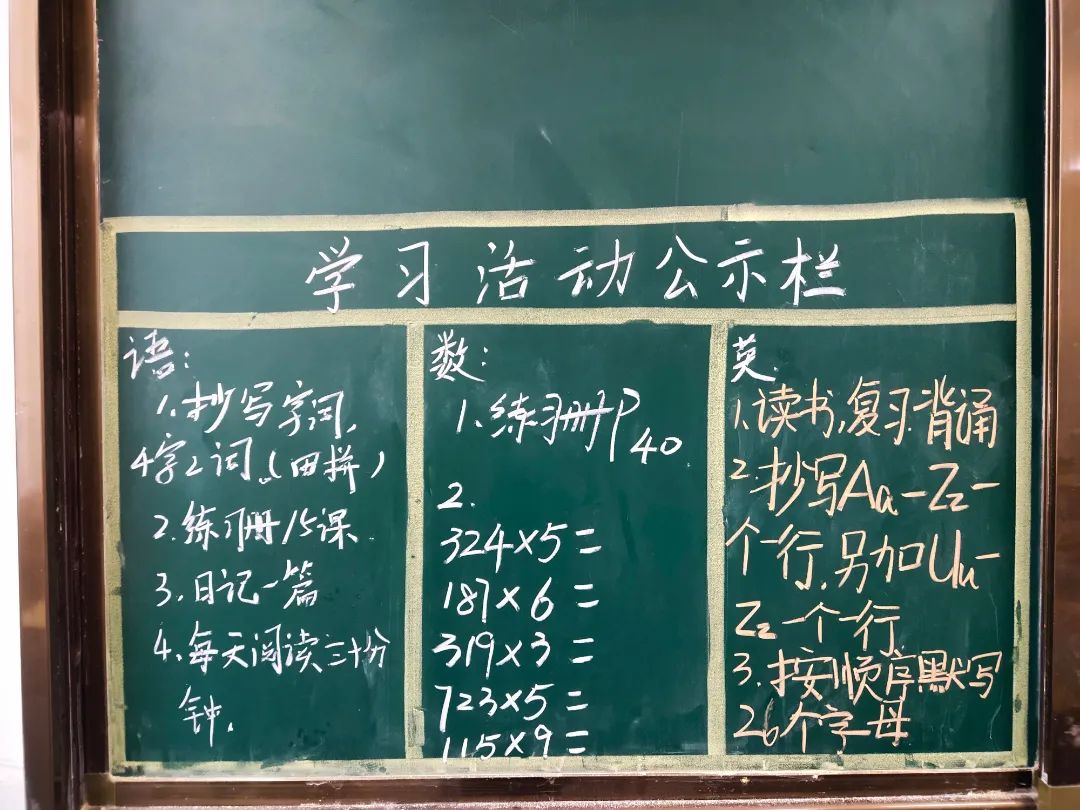 学习活动公示栏
语:
1.抄写字词,
4字2词,(田拼)
2.练习册15课
3.日记一篇
4.每天阅读三十分
钟.
数:
1.练习册P40
2.
324×5=
187×6=
319×3=
723×5=
115×9=
英.
1.读书,复习.背诵
2.抄写Aa-Zz一
个一行,另加Uu-
Zz一个一行
3.按顺序默写
26个字母